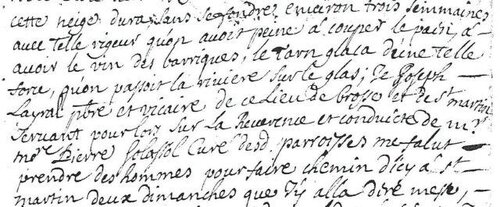 cette neige dura sans se fondre, environ trois semmaines
avec telle rigeur qu'on avoit peine a couper le pain, a
avoir le vin des barriques, le tarn glaca deine telle
force, qu'on passoit la riviere sur le glas; Je Joseph
Layral pbre et vicaire de ce Lieu de Brosse et de st martin
servant pour lors sur la Reverence et conduicte de mr
mre Pierre Solassol Curé desd parroisses me falut
prendre des hommes pour faire chemin d'icy a st
martin deux dimanches que j'y alla dire messe,